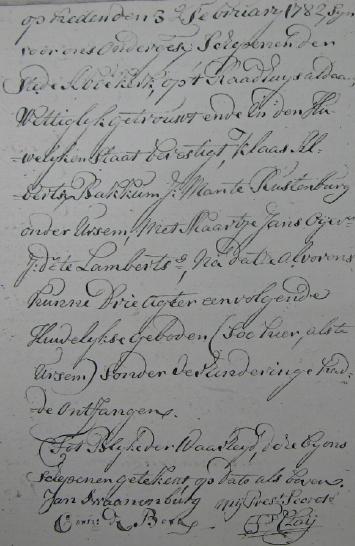 op heden den 3 Februarij 1782 Zijn
voor ons ondergesz: Schepenen der
Stede op 't Raadhuys aldaar,
Wettiglyk getrouwt ende in den Hu
-welyken staat bevestigt, Klaas Al-
-bertsz Bakkum J: Man te Rustenburg
onder Ursem, Met Maartje Jans
J: dr te Lamberts, Na dat ze alvorens
hunne Drie agter eenvolgende
Huwelykse geboden (soo hier, als te
Ursem) sonder verhindering had-
de Ontfangen.
Tot Blyk der Waarheyd, deze by ons
Schepenen getekent, op dato als boven.
Jan Swaanenburg my Pres: Secrets